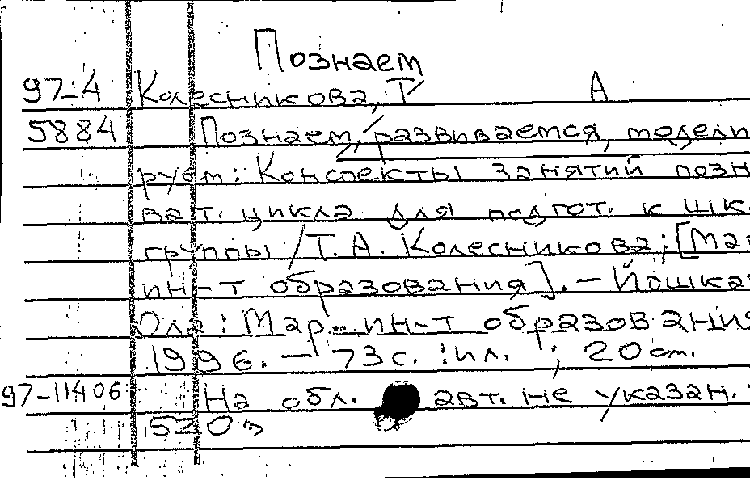 Познаем
97-4 Колесникова, Т А
5884 Познаем, развиваемся, модели
руем: Конспекты занятий позн
ват. цикла для подгот. к шк
группы / Т. А. Колесникова; [Мар
ин-т образования]. - Йошка
Ола: Мар. ин-т образования
1996. - 73 с. : ил. ; 20 см.
97-11406 На обл. авт. не указан.